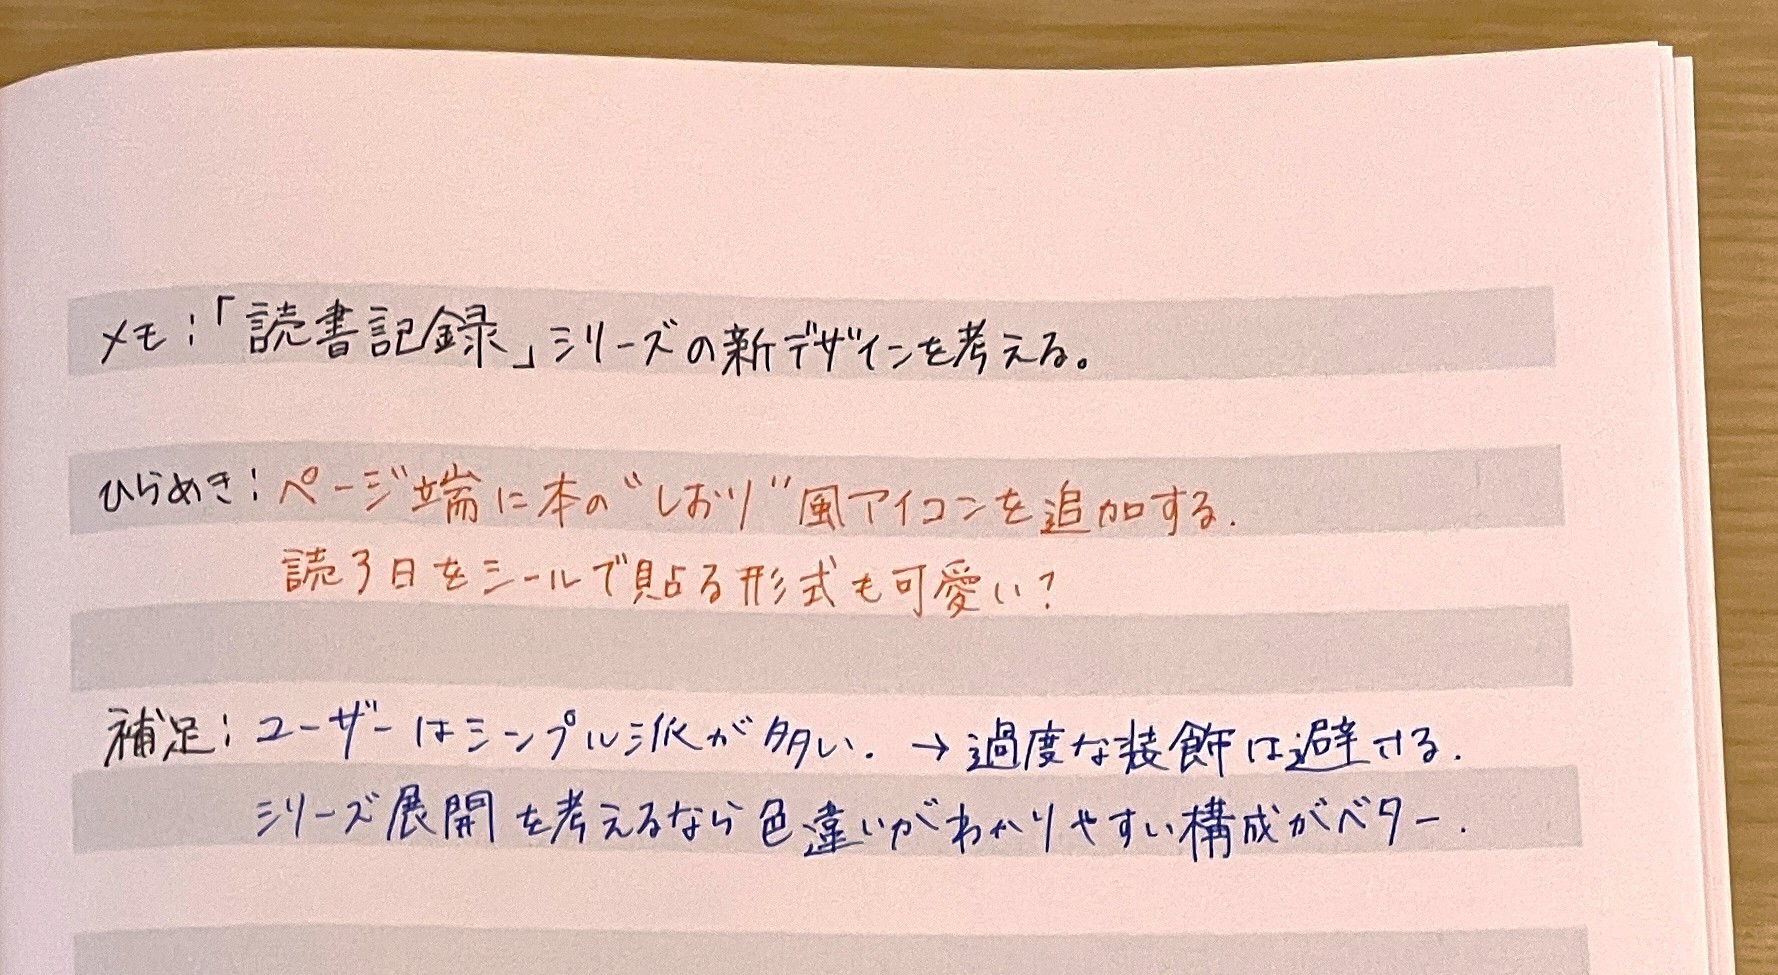 メモ:「読書記録」シリーズの新デザインを考える。
ひらめき:ページ端に本の"しおり"風アイコンを追加する.
読了日をシールで貼る形式も可愛い?
補足:ユーザーはシンプル派が多い.→過度な装飾は避ける.
シリーズ展開を考えるなら色違いがわかりやすい構成がベター.